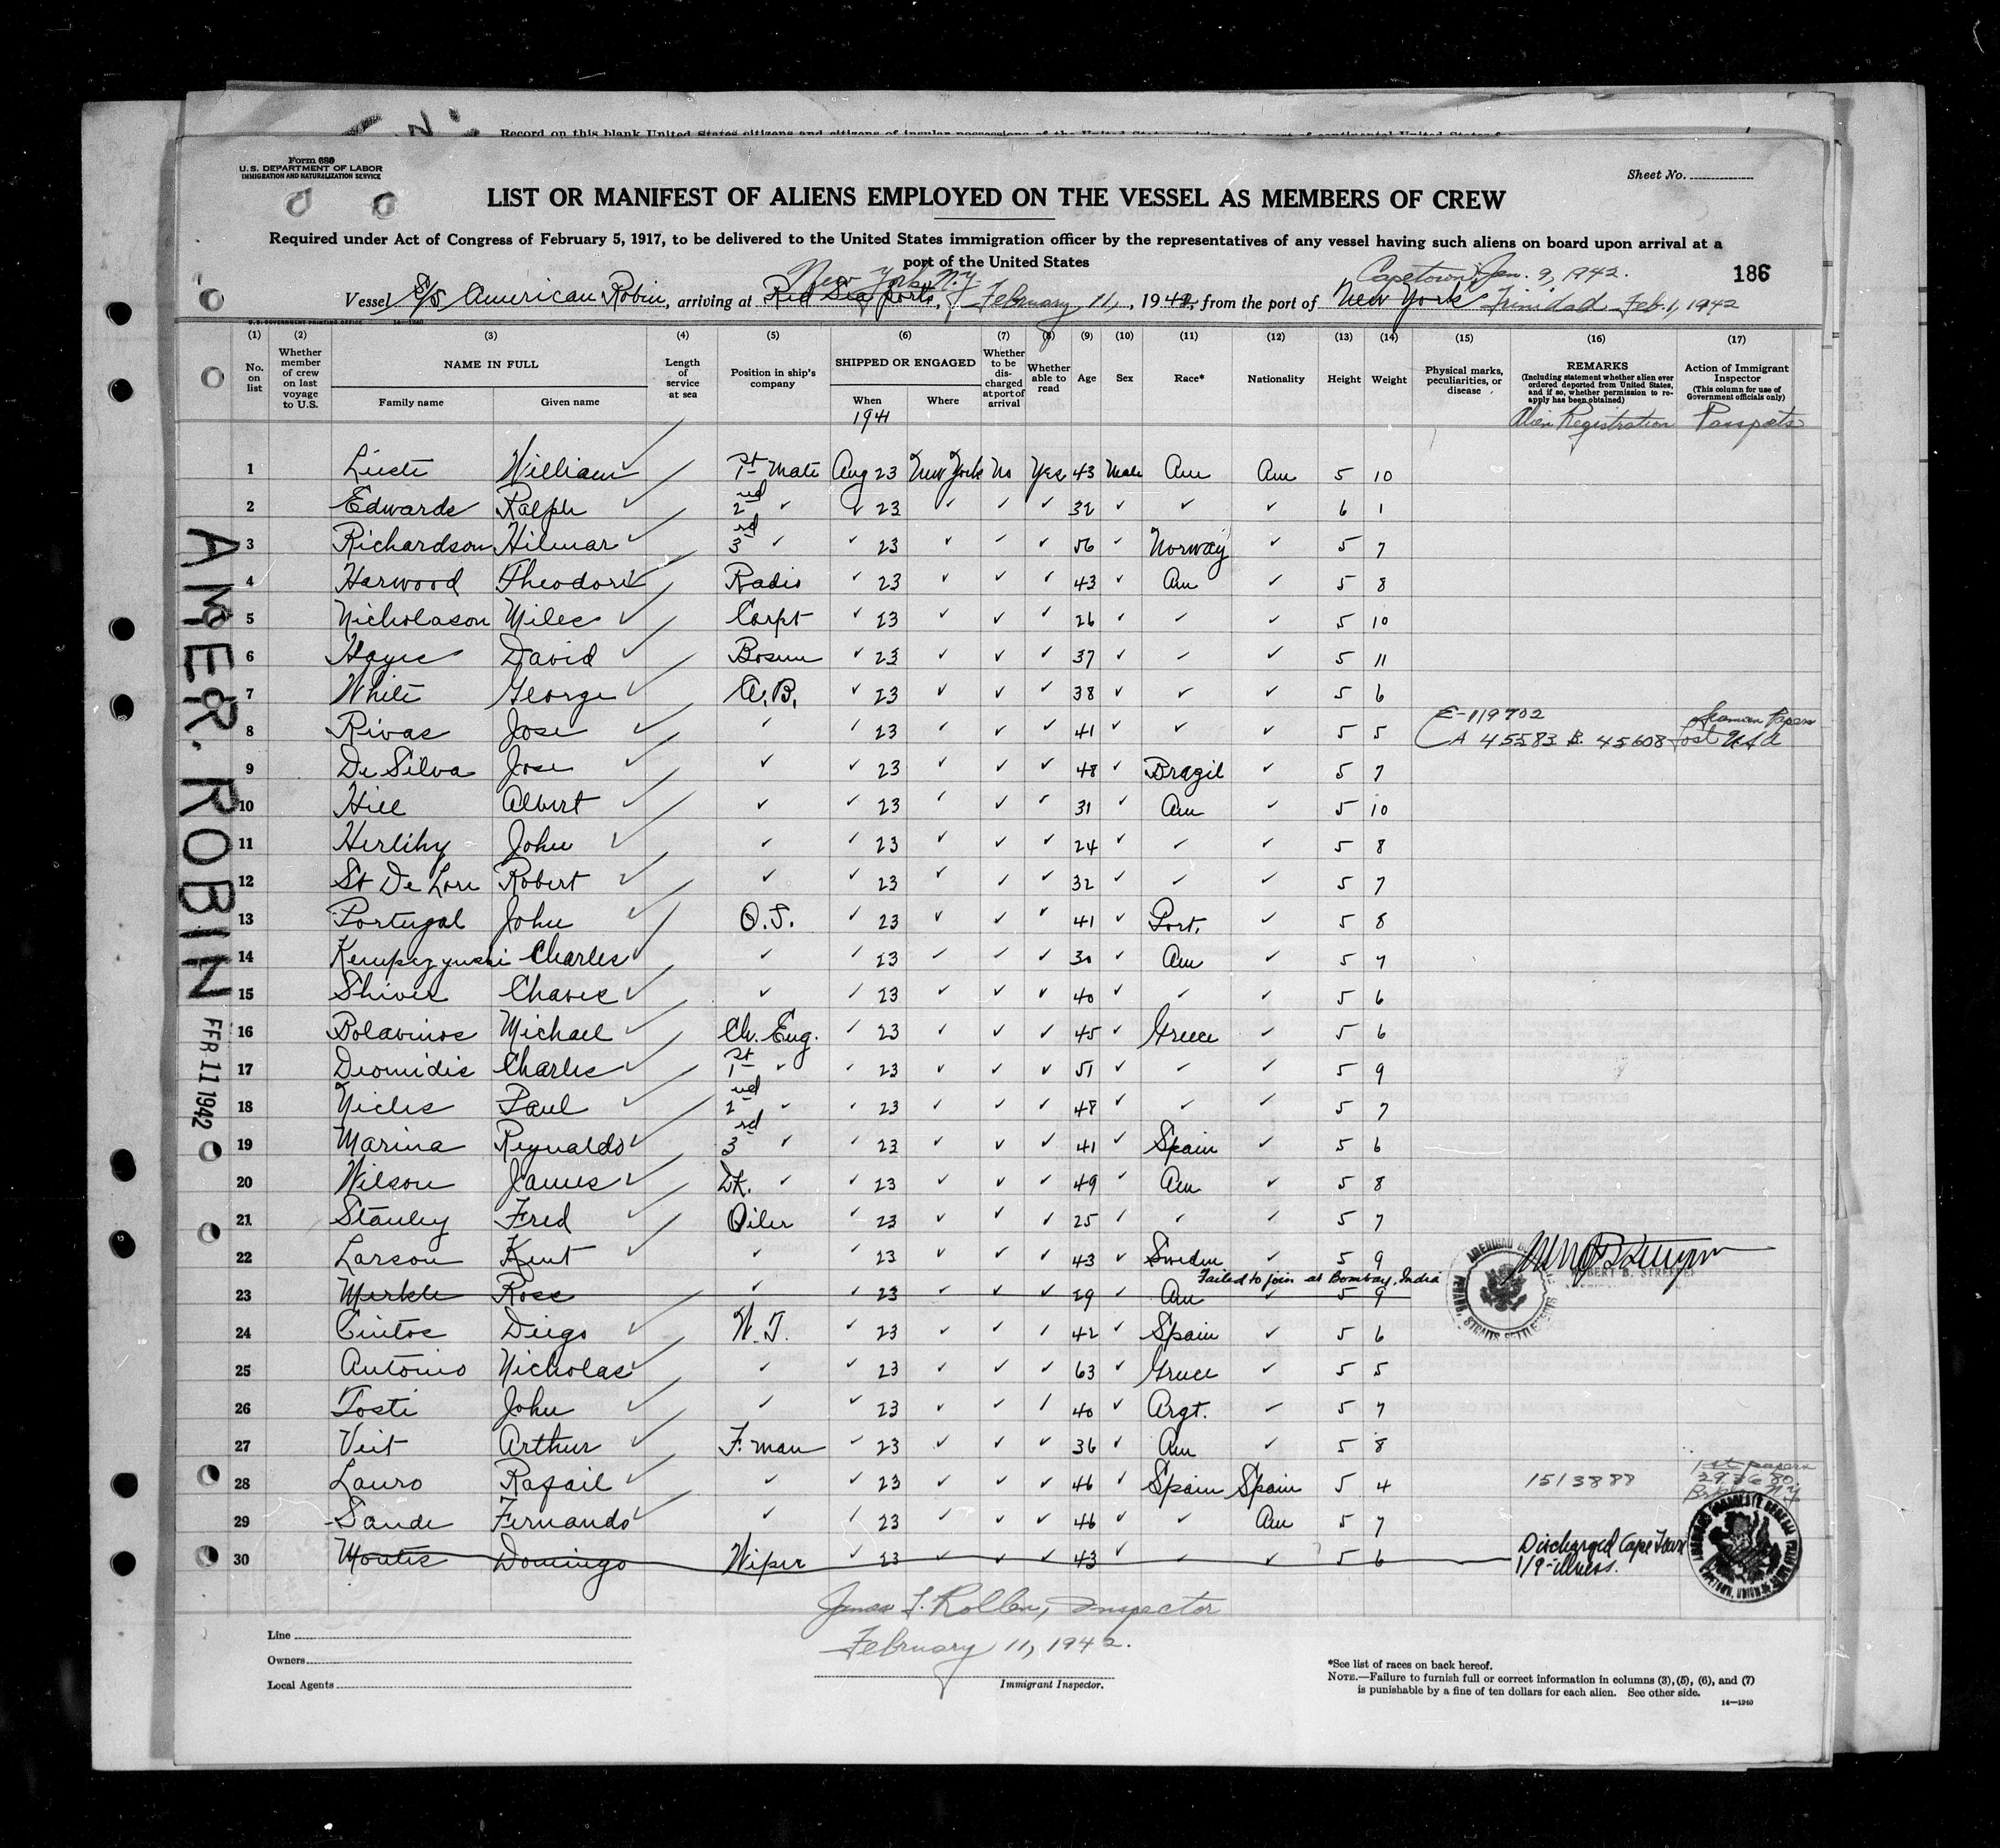 Record on this blank United States citizens and citizens of insular possessions of the United States
Form 680
U.S. DEPARTMENT OF LABOR
IMMIGRATION AND NATURALIZATION SERVICE
Sheet No.
LIST OR MANIFEST OF ALIENS EMPLOYED ON THE VESSEL AS MEMBERS OF CREW
Required under Act of Congress of February 5, 1917, to be delivered to the United States immigration officer by the representatives of any vessel having such aliens on board upon arrival at a
port of the United States
New York, N.Y. Capetown, Jan. 9, 1942. 186
Vessel S/S American Robin, arriving at Red Sea Ports, February 11, 1942, from the port of New York Trinidad Feb. 1, 1942
U.S. GOVERNMENT PRINTING OFFICE 14—1240
(1) (2) (3) (4) (5) (6) (7) (8) (9) (10) (11) (12) (13) (14) (15) (16) (17)
No. on list
Whether member of crew on last voyage to U.S.
NAME IN FULL
Family name Given name
Length of service at sea
Position in ship's company
SHIPPED OR ENGAGED
When Where
1941
Whether to be discharged at port of arrival
Whether able to read
Age
Sex
Race*
Nationality
Height
Weight
Physical marks, peculiarities, or disease
REMARKS
(Including statement whether alien ever ordered deported from United States, and if so, whether permission to reapply has been obtained)
Alien Registration
Action of Immigrant Inspector
(This column for use of Government officials only)
Passports
1 William 1st Mate Aug 23 New York No Yes 43 Male Am Am 5 10
2 Edwards Ralph 2nd ✓ ✓ 23 ✓ ✓ ✓ 32 ✓ ✓ ✓ 6 1
3 Richardson Hilmar 3rd ✓ ✓ 23 ✓ ✓ ✓ 56 ✓ Norway ✓ 5 7
4 Harwood Theodore Radio ✓ 23 ✓ ✓ ✓ 43 ✓ Am ✓ 5 8
5 Nicholason Miles Carpt ✓ 23 ✓ ✓ ✓ 26 ✓ ✓ ✓ 5 10
6 Hayes David Bosun ✓ 23 ✓ ✓ ✓ 37 ✓ ✓ ✓ 5 11
7 White George A.B. ✓ 23 ✓ ✓ ✓ 38 ✓ ✓ ✓ 5 6
8 Rivas Jose ✓ ✓ 23 ✓ ✓ ✓ 41 ✓ ✓ ✓ 5 5 E-119702 A 45583 B. 45608 Seaman Papers Lost USA
9 De Silva Jose ✓ ✓ 23 ✓ ✓ ✓ 48 ✓ Brazil ✓ 5 7
10 Hill Albert ✓ ✓ 23 ✓ ✓ ✓ 31 ✓ Am ✓ 5 10
11 Herlihy John ✓ ✓ 23 ✓ ✓ ✓ 24 ✓ ✓ ✓ 5 8
12 St De Lore Robert ✓ ✓ 23 ✓ ✓ ✓ 32 ✓ ✓ ✓ 5 7
13 Portugal John O.S. ✓ 23 ✓ ✓ ✓ 41 ✓ Port. ✓ 5 8
14 Kempczynski Charles ✓ ✓ 23 ✓ ✓ ✓ 30 ✓ Am ✓ 5 7
15 Shives ✓ ✓ 23 ✓ ✓ ✓ 40 ✓ ✓ ✓ 5 6
16 Bolavinos Michael Ch. Eng. ✓ 23 ✓ ✓ ✓ 45 ✓ Greece ✓ 5 6
17 Deomidis Charles 1st ✓ ✓ 23 ✓ ✓ ✓ 51 ✓ ✓ ✓ 5 9
18 Paul 2nd ✓ ✓ 23 ✓ ✓ ✓ 48 ✓ ✓ ✓ 5 7
19 Marina Reynaldo 3rd ✓ ✓ 23 ✓ ✓ ✓ 41 ✓ Spain ✓ 5 6
20 Wilson James Dk. ✓ ✓ 23 ✓ ✓ ✓ 49 ✓ Am ✓ 5 8
21 Stanley Fred Oiler ✓ 23 ✓ ✓ ✓ 25 ✓ ✓ ✓ 5 7
22 Larson Kent ✓ ✓ 23 ✓ ✓ ✓ 43 ✓ Sweden ✓ 5 9
Failed to join at Bombay, India
23 Merkle Rose ✓ 23 ✓ ✓ ✓ 29 ✓ Am ✓ 5 9
24 Cintos Diego W.T. ✓ 23 ✓ ✓ ✓ 42 ✓ Spain ✓ 5 6
25 Antonio Nicholas ✓ ✓ 23 ✓ ✓ ✓ 63 ✓ Greece ✓ 5 5
26 Tosti John ✓ ✓ 23 ✓ ✓ ✓ 40 ✓ Argt. ✓ 5 7
27 Veit Arthur F. man ✓ 23 ✓ ✓ ✓ 36 ✓ Am ✓ 5 8
28 Lauro Rafail ✓ ✓ 23 ✓ ✓ ✓ 46 ✓ Spain Spain 5 4 1513888 1st papers
29 Sande Fernando ✓ ✓ 23 ✓ ✓ ✓ 46 ✓ ✓ Am 5 7
30 Montes Domingo Wiper ✓ 23 ✓ ✓ ✓ 43 ✓ ✓ ✓ 5 6 Discharged Cape Town 1/9-illness.
AMER. ROBIN FEB 11 1942
PENANG, STRAITS SETTLEMENTS
James F. Rollen, Inspector
February 11, 1942.
Immigrant Inspector.
Line
Owners
Local Agents
*See list of races on back hereof.
NOTE.—Failure to furnish full or correct information in columns (3), (5), (6), and (7)
is punishable by a fine of ten dollars for each alien. See other side.
14—1240